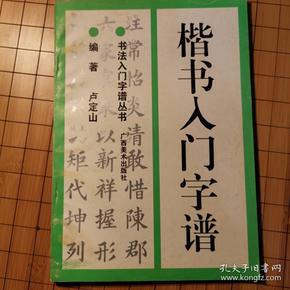 楷书入门字谱
书法入门字谱丛书
广西美术出版社
编著 卢定山
陳郡
清敢惜
常怡炎
祥握形
以新
矩代坤列
孔夫子旧书网